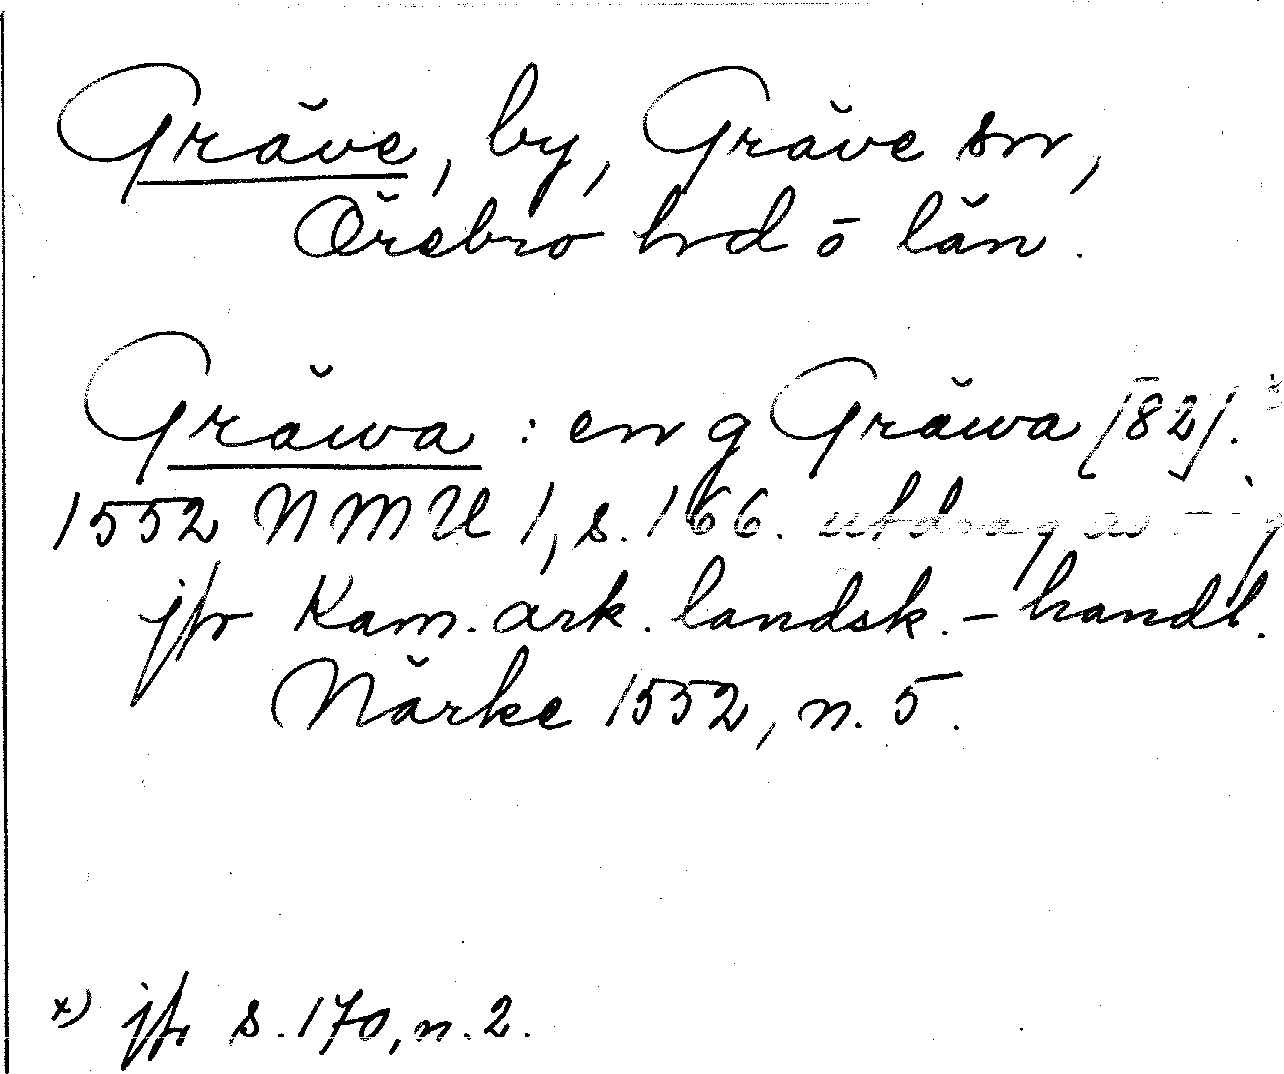 Gräve, by, Gräve sn,
Örebro hd o län.
Gräwa: en g Gräwa [82].
1552 NMU 1, s. 166. utdrag av
jfr Kam. ark. landsk.-handl.
Närke 1552, n. 5.
x) jfr s. 170, n. 2.